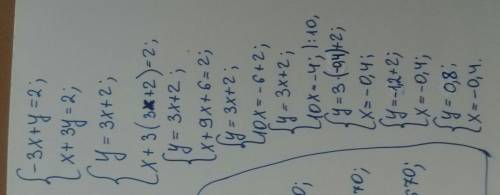 {-3x+y=2;
x+3y=2;
{y=3x+2;
x+3(3x+2)=2;
{y=3x+2;
x+9x+6=2;
{y=3x+2;
10x=-6+2;
{y=3x+2;
10x=-4; ):10,
{y=3·(-0,4)+2;
x=-0,4;
{y=-1,2+2;
x=-0,4;
{y=0,8;
x=-0,4.